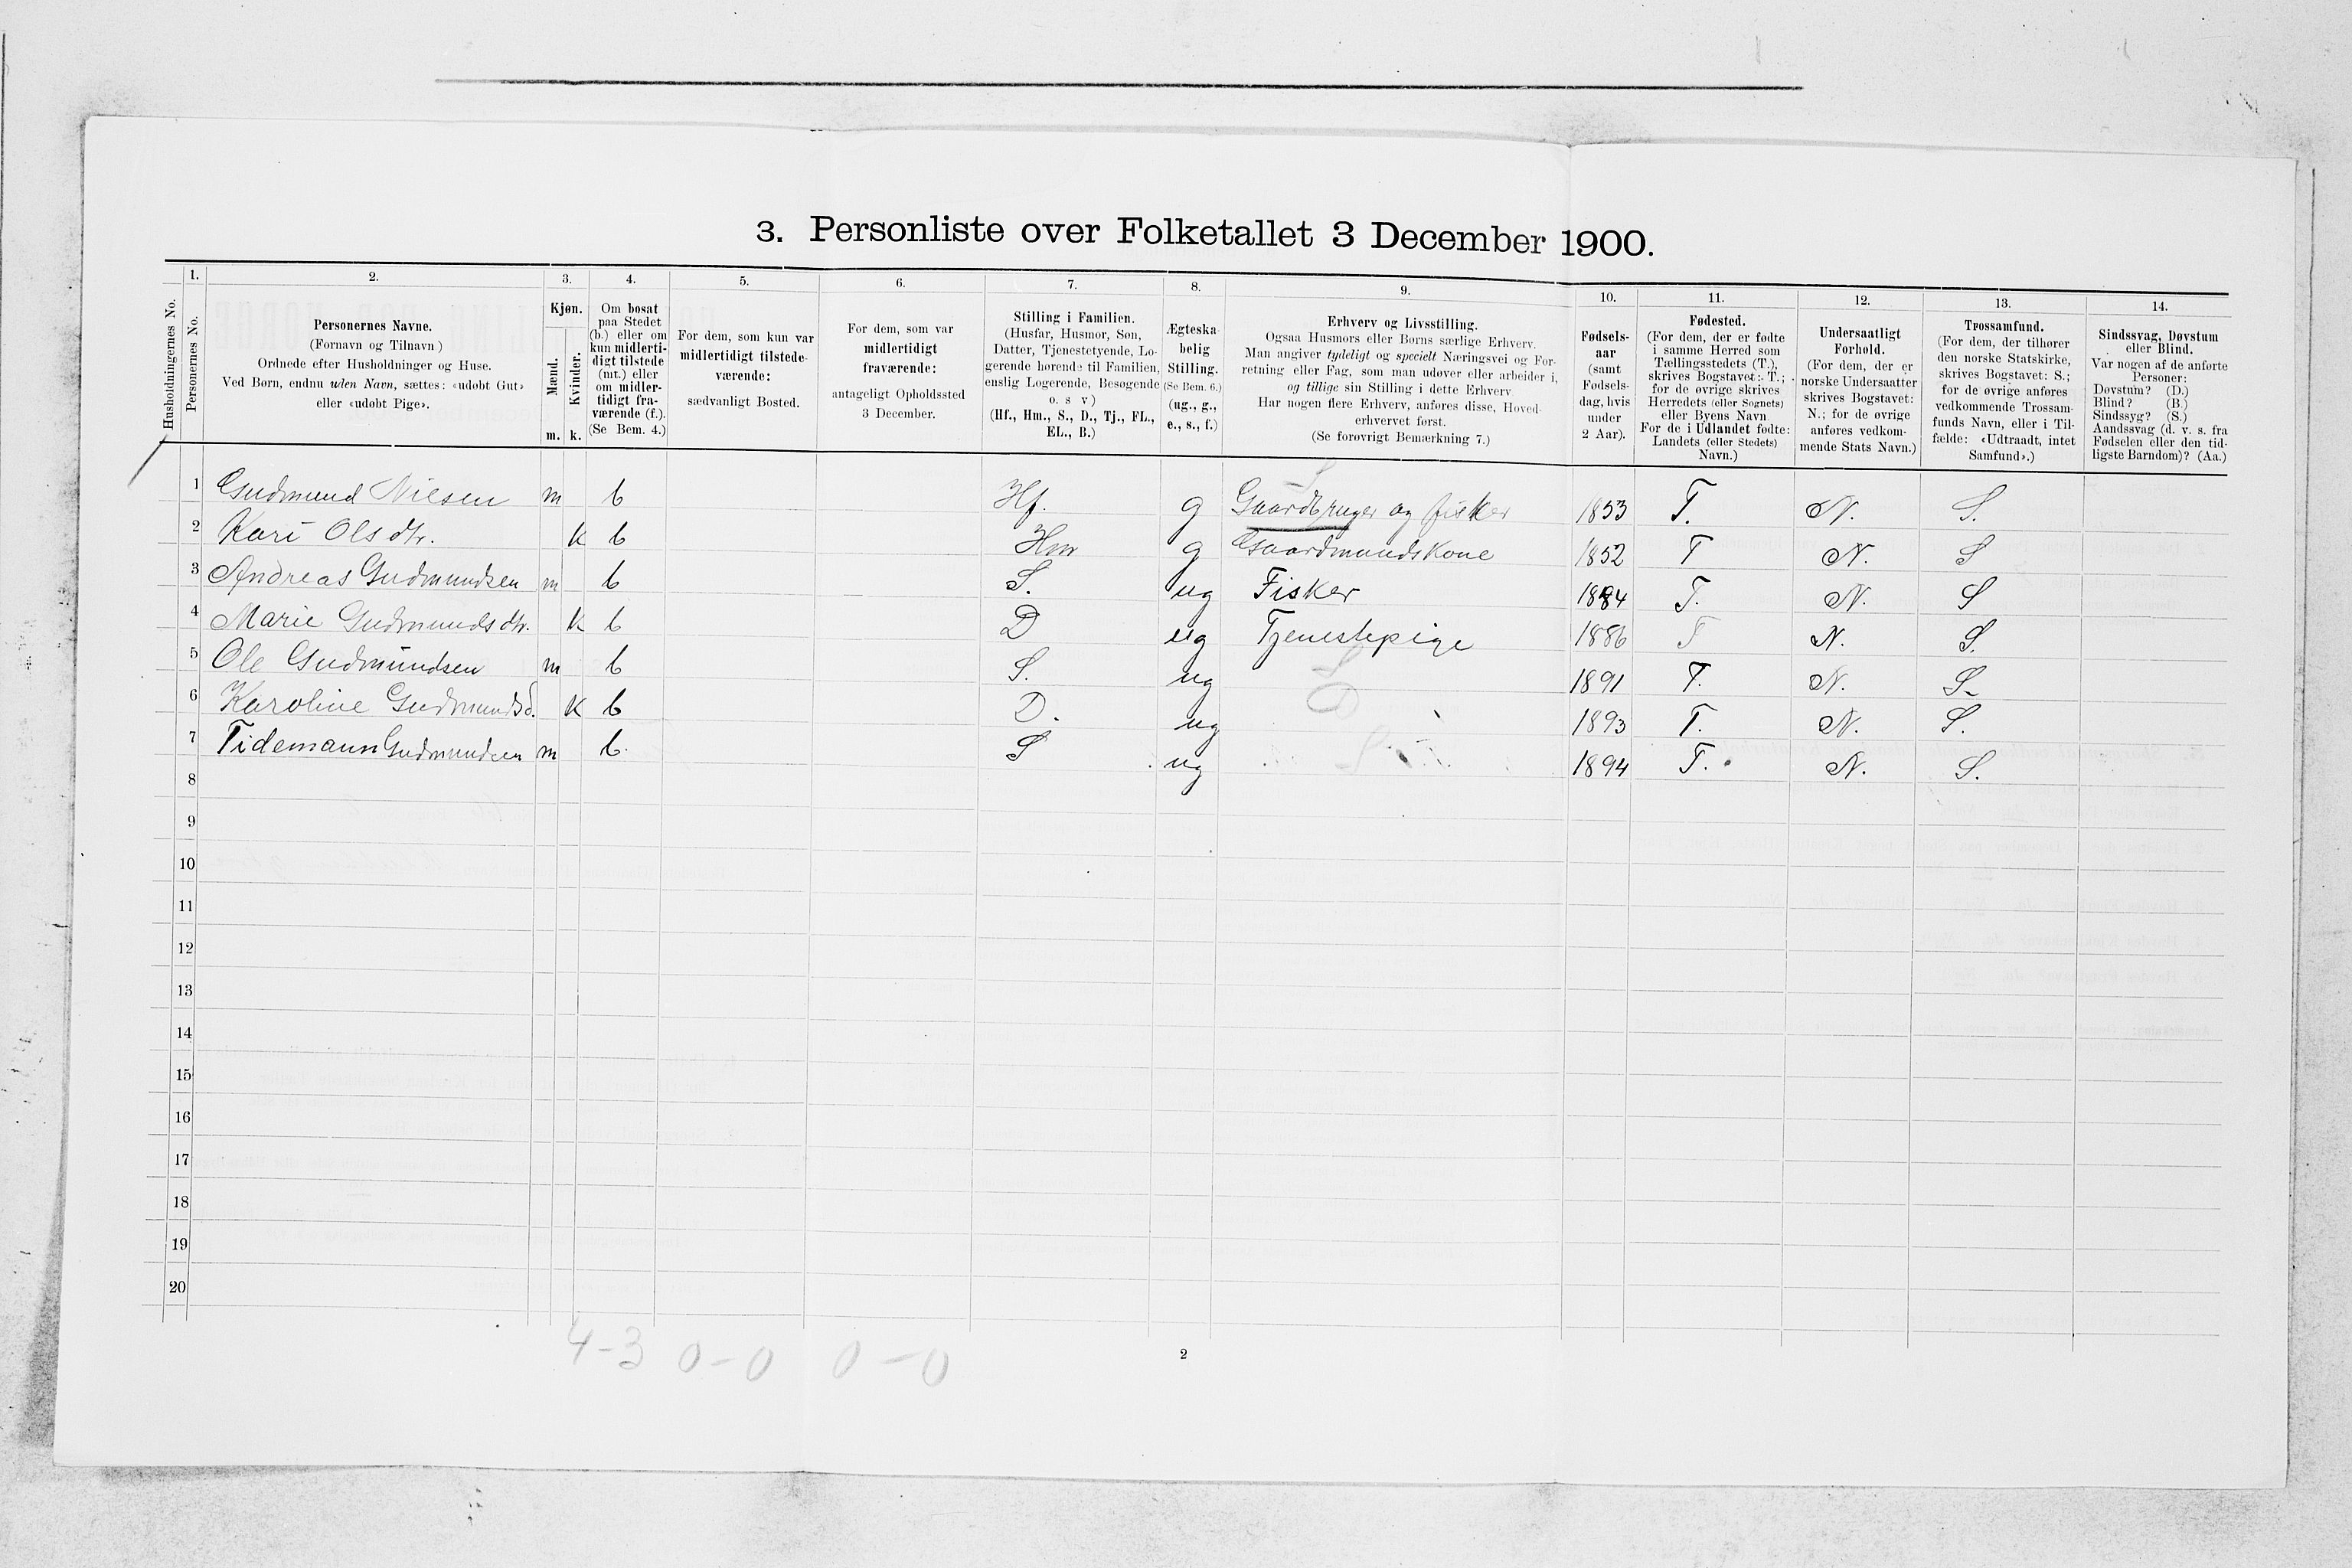 3. Personliste over Folketallet 3 December 1900.
Husholdningernes No.
1.
Personernes No.
2.
Personernes Navne.
(Fornavn og Tilnavn)
Ordnede efter Husholdninger og Huse.
Ved Børn, endnu uden Navn, sættes: «udøbt Gut»
eller «udøbt Pige».
3.
Kjøn.
Mænd.
Kvinder.
m. k.
4.
Om bosat
paa Stedet
(b.) eller om
kun midlerti-
digt tilstede
(mt.) eller
om midler-
tidigt fra-
værende (f.).
(Se Bem. 4.)
5.
For dem, som kun var
midlertidigt tilstede-
værende:
sædvanligt Bosted.
6.
For dem, som var
midlertidigt
fraværende:
antageligt Opholdssted
3 December.
7.
Stilling i Familien.
(Husfar, Husmor, Søn,
Datter, Tjenestetyende, Lo-
gerende hørende til Familien,
enslig Logerende, Besøgende
o. s v)
(Hf., Hm., S., D., Tj., FL.,
EL., B.)
8.
Ægteska-
belig
Stilling.
(Se Bem. 6.)
(ug., g.,
e., s., f.)
9.
Erhverv og Livsstilling.
Ogsaa Husmors eller Børns særlige Erhverv.
Man angiver tydeligt og specielt Næringsvei og For-
retning eller Fag, som man udøver eller arbeider i,
og tillige sin Stilling i dette Erhverv.
Har nogen flere Erhverv, anføres disse, Hoved-
erhvervet først.
(Se forøvrigt Bemærkning 7.)
10.
Fødsels-
aar
(samt
Fødsels-
dag, hvis
under
2 Aar).
11.
Fødested.
(For dem, der er fødte
i samme Herred som
Tællingsstedets (T.),
skrives Bogstavet: T.;
for de øvrige skrives
Herredets (eller Sognets)
eller Byens Navn
For de i Udlandet fødte:
Landets (eller Stedets)
Navn.)
12.
Undersaatligt
Forhold.
(For dem, der er
norske Undersaatter
skrives Bogstavet:
N.; for de øvrige
anføres vedkom-
mende Stats Navn.)
13.
Trossamfund.
(For dem, der tilhører
den norske Statskirke,
skrives Bogstavet: S.;
for de øvrige anføres
vedkommende Trossam-
funds Navn, eller i Til-
fælde: «Udtraadt, intet
Samfund».)
14.
Sindssvag, Døvstum
eller Blind.
Var nogen af de anførte
Personer:
Døvstum? (D.)
Blind? (B.)
Sindssyg? (S.)
Aandssvag (d. v. s. fra
Fødselen eller den tid-
ligste Barndom)? (Aa.)
1 Gudmund Nilsen m b Hf. g Gaardbruger og fisker 1853 T. N. S.
2 Kari Olsdtr. k b Hm g Gaardmandskone 1852 T N. S
3 Andreas Gudmundsen m b S. ug Fisker 1884 T. N. S
4 Marie Gudmundsdtr. k b D ug Tjenestepige 1886 T N. S.
5 Ole Gudmundsen m b S. ug S 1891 T. N. S.
6 Karoline Gudmundsd. k b D. ug D 1893 T. N. S.
7 Tidemann Gudmundsen m b. S ug S 1894 T. N. S.
8
9
10
11
12
13
14
15
16
17
18
19
20
4-3 0-0 0-0
2